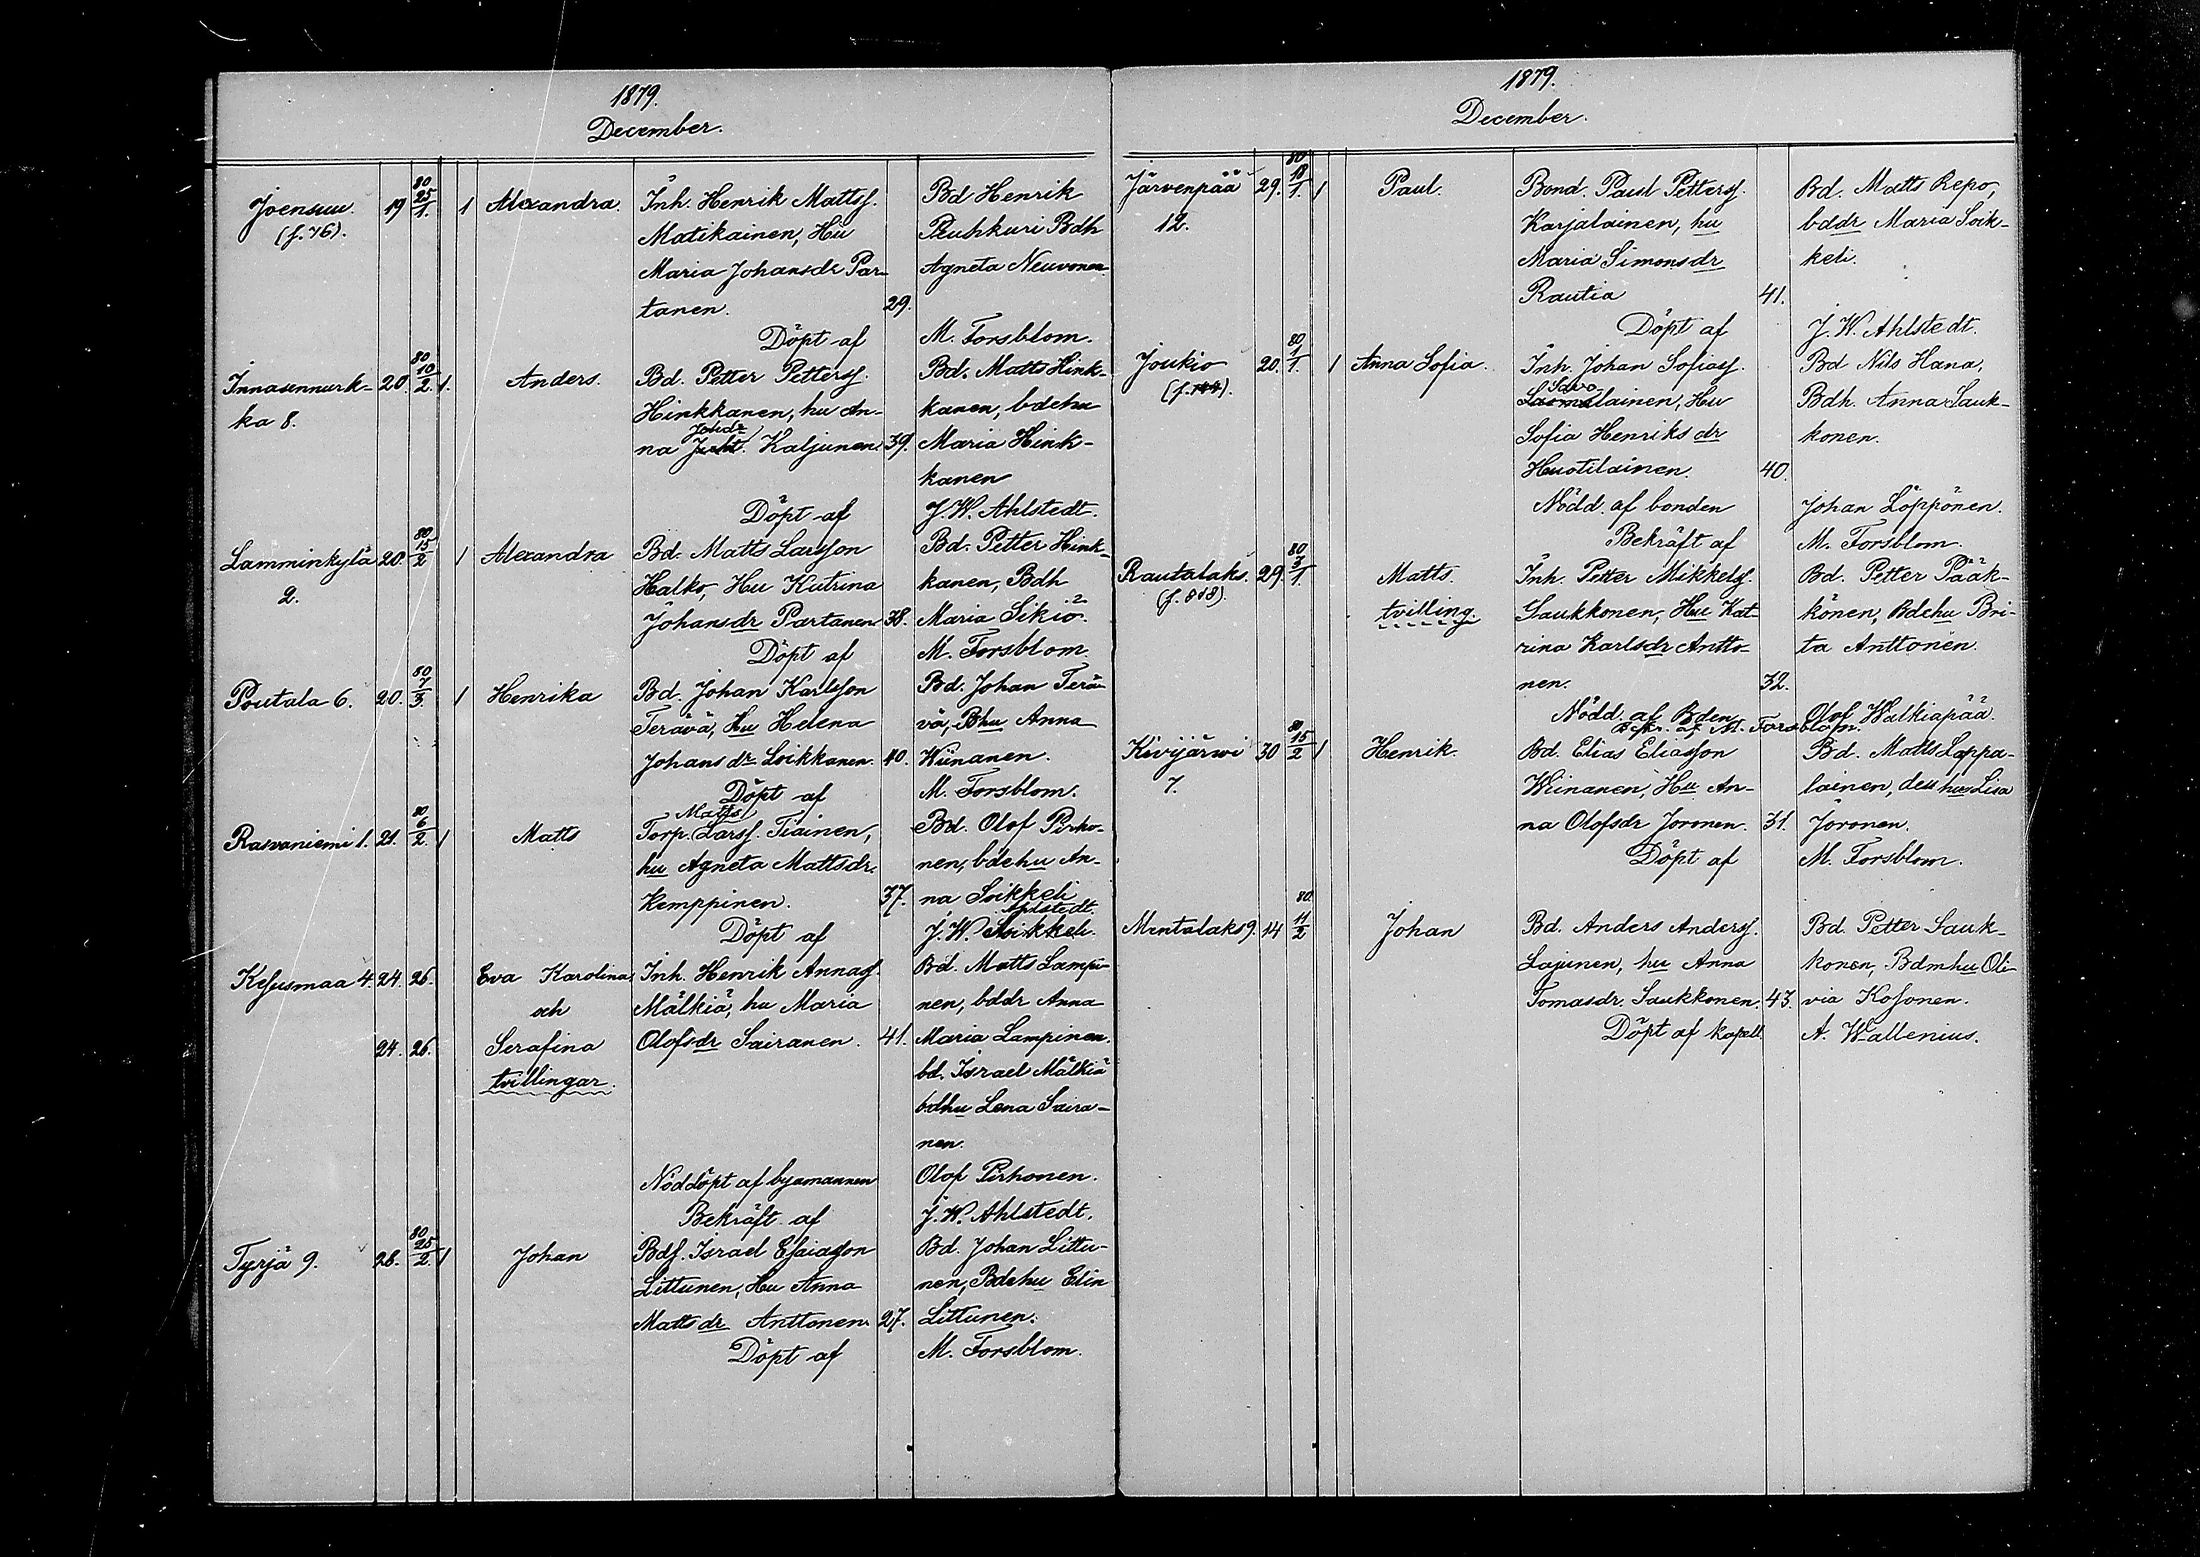 1879.
December.
80
Joensuu. 19 25/1. 1 Alexandra. Inh. Henrik Mattsf. Bd Henrik
(f. 76). Matikainen, Hu Puhkuri Bdh
Maria Johansdr Par- Agneta Neuvonen
tanen. 29.
Döpt af M. Forsblom.
80
Innasennurk- 20. 10/2. 1. Anders. Bd. Petter Pettersf. Bd. Matts Hink-
ka 8. Hinkkanen, hu An- kanen, bdehu
Johdr
na Kaljunen. 39. Maria Hink-
kanen
Döpt af J. W. Ahlstedt.
80
Lamminkylä 20. 15/2 1 Alexandra Bd. Matts Larsson Bd. Petter Hink-
2. Halko, Hu Katrina kanen, Bdh
Johansdr Partanen 38. Maria Sikiö.
Döpt af M. Forsblom.
80
Poutala 6. 20. 7/3. 1 Henrika Bd. Johan Karlsson Bd. Johan Terä-
Terävä, Hu Helena vä, Bhu Anna
Johansdr Loikkanen. 40. Wiinanen.
Döpt af M. Forsblom.
80 Matts
Rasvaniemi 1. 21. 6/2. 1 Matts Torp. Larsf. Tiainen, Bd. Olof Pirho-
hu Agneta Mattsdr. nen, bdehu An-
Kemppinen. 37. na Soikkeli
Ahlstedt.
Döpt af J. W. Soikkeli.
Kesusmaa 4. 24. 26. Eva Karolina Inh. Henrik Annasf. Bd. Matts Lampi-
och Mälkiä, hu Maria nen, bddr Anna
24. 26. Serafina Olofsdr Sairanen. 41. Maria Lampinen.
tvillingar. bd. Israel Mälkiä
bdhu Lena Saira-
nen.
Nöddöpt af byamannen Olof Pirhonen.
Bekräft. af J. W. Ahlstedt.
80
Tyrjä 9. 28. 25/2. 1 Johan Bdf. Israel Esaiasson Bd. Johan Littu-
Littunen, Hu Anna nen, Bdehu Elin
Mattsdr Anttonen. 27. Littunen.
Döpt af M. Forsblom.
1879.
December.
80
Järvenpää 29. 18/1. 1 Paul. Bond. Paul Pettersf. Bd. Matts Repo,
12. Karjalainen, hu bddr Maria Soik-
Maria Simonsdr keli.
Rautia 41.
Döpt af J. W. Ahlstedt.
80
Joukio 20. 1/1. 1 Anna Sofia. Inh. Johan Sofiasf. Bd Nils Hana,
Savo-
(f. 144). lainen, Hu Bdh. Anna Sauk-
Sofia Henriksdr konen.
Huotilainen. 40.
Nödd. af bonden Johan Löppönen.
Bekräft af M. Forsblom.
80
Rautalaks. 29. 3/1. Matts. Inh. Petter Mikkelsf. Bd. Petter Pääk-
(f. 818). tvilling. Saukkonen, Hu Kat- könen, Bdehu Bri-
rina Karlsdr Antto- ta Anttonen.
nen. 32.
Nödd. af Bden Olof Walkiapää.
Bekr. af M. Forsblom.
80
Kivijärwi 30 15/2 1 Henrik. Bd. Elias Eliasson Bd. Matts Lappa-
7. Wiinanen, Hu An- lainen, dess hu Lisa
na Olofsdr Joronen. 31. Joronen.
Döpt af M. Forsblom.
80.
Mentalaks 9. 14 11/2 Johan Bd. Anders Andersf. Bd. Petter Sauk-
Lajunen, hu Anna konen, Bdmhu Oli-
Tomasdr. Saukkonen. 43. via Kosonen.
Döpt af kapell. A. Wallenius.